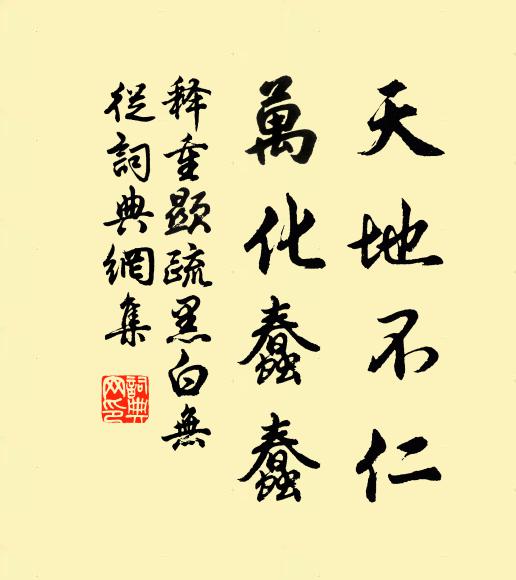 天地不仁
萬化蠢蠢
释重顯疏黑白無
從詞典網集
詞典网印